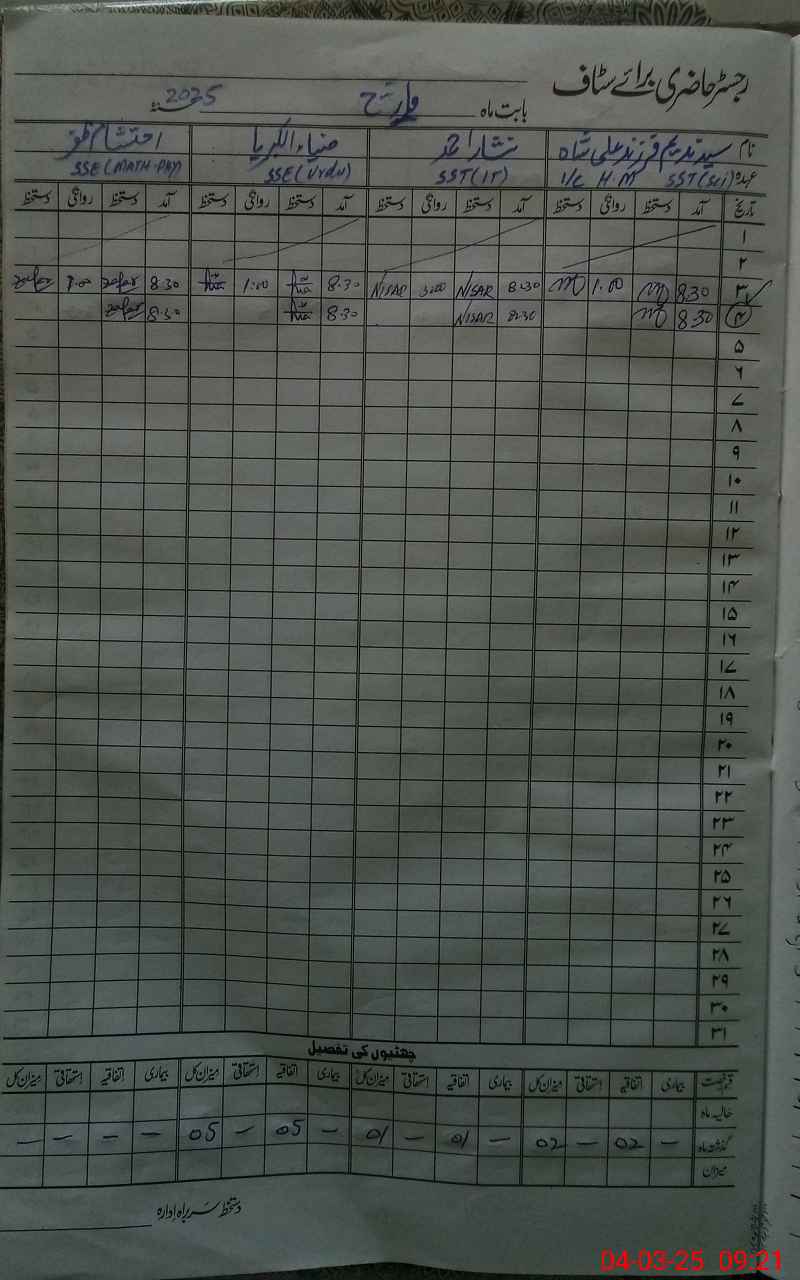 رجسٹر حاضری برائے سٹاف
بابت ماہ مارچ 2025
نام سید ندیم فرزند علی شاہ نثار احمد ضیاء الکبریا احتشام ظفر
عہدہ SST(Sci) I/C H.M SST(IT) SSE(Urdu) SSE(MATH-PHY)
تاریخ آمد دستخط روانگی دستخط آمد دستخط روانگی دستخط آمد دستخط روانگی دستخط آمد دستخط روانگی دستخط
۱
۲
۳ 8.30 1.00 8.30 NISAR 3:00 NISAR 8.30 Zia 1:00 Zia 8.30 Zafar 1.00 Zafar
۴ 8.30 8.30 NISAR 8.30 Zia 8.30 Zafar
۵
۶
۷
۸
۹
۱۰
۱۱
۱۲
۱۳
۱۴
۱۵
۱۶
۱۷
۱۸
۱۹
۲۰
۲۱
۲۲
۲۳
۲۴
۲۵
۲۶
۲۷
۲۸
۲۹
۳۰
۳۱
چھٹیوں کی تفصیل
قسم رخصت بیماری اتفاقیہ استحقاقی میزان کل بیماری اتفاقیہ استحقاقی میزان کل بیماری اتفاقیہ استحقاقی میزان کل بیماری اتفاقیہ استحقاقی میزان کل
حالیہ ماہ
گذشتہ ماہ – 02 – 02 – 01 – 01 – 05 – 05 – – – –
میزان
دستخط سربراہ ادارہ
04-03-25 09:21